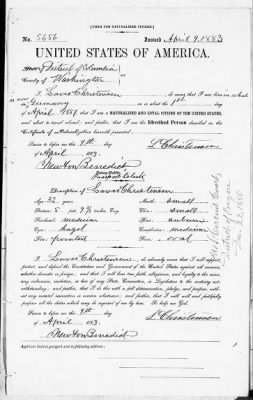 [FORM FOR NATURALIZED CITIZEN.]
No. 5656 Issued April 9, 1883
UNITED STATES OF AMERICA.
District of Columbia
County of Washington
I, Laves Christensen, do swear that I was born in
Germany, on or about the 1st day
of April 1851; that I am a NATURALIZED AND LOYAL CITIZEN OF THE UNITED STATES,
and about to travel abroad; and further, that I am the Identical Person described in the
Certificate of Naturalization herewith presented.
Sworn to before me this 9th day
of April 1883.
L Christensen
Newton Benedict
Notary Public
Passport Clerk
Description of Laves Christensen
Age: 32 years Mouth: small
Stature: 5 feet 9 1/2 inches, Eng. Chin: small
Forehead: medium Hair: auburn
Eyes: hazel Complexion: medium
Nose: pointed Face: oval
I, Laves Christensen, do solemnly swear that I will support,
protect, and defend the Constitution and Government of the United States against all enemies,
whether domestic or foreign; and that I will bear true faith, allegiance, and loyalty to the same,
any ordinance, resolution, or law of any State, Convention, or Legislature to the contrary not-
withstanding; and further, that I do this with a full determination, pledge, and purpose, with-
out any mental reservation or evasion whatsoever; and further, that I will well and faithfully
perform all the duties which may be required of me by law. So help me God.
Sworn to before me this 9th day
of April 1883.
L Christensen
Newton Benedict
Applicant desires passport sent to following address:
U.S. Circuit Court,
District of Oregon